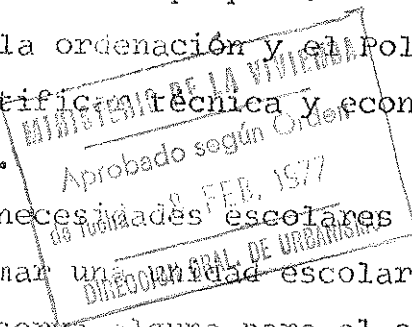 la ordenación y el Pol
tifica técnica y econ
necesidades escolares
mar una unidad escolar
MINISTERIO DE LA VIVIENDA
Aprobado según Orden
de fecha 8 FEB. 1977
DIRECCION GRAL. DE URBANISMO